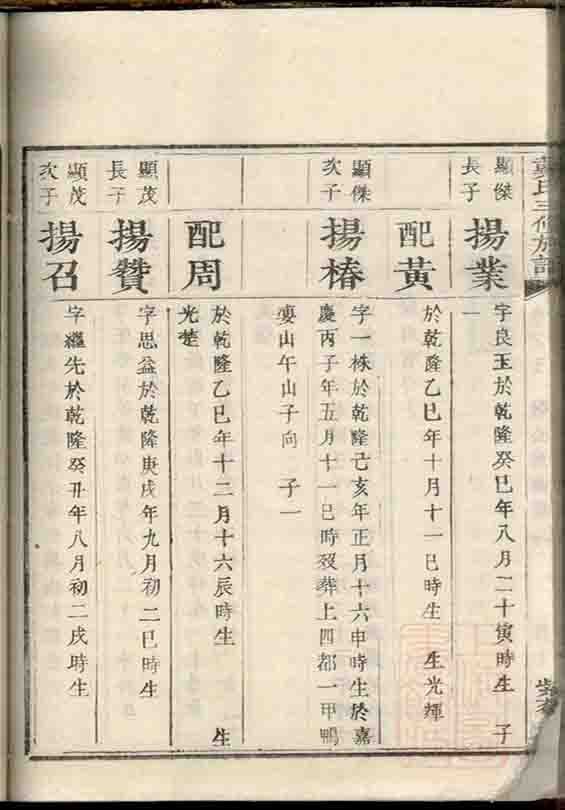 氏三修族譜
顯傑
長子
揚業
字良玉於乾隆癸巳年八月二十寅時生 子
一
配黃
於乾隆乙巳年十月十一巳時生 生光輝
顯傑
次子
揚椿
字一株於乾隆己亥年正月十六申時生於嘉
慶丙子年五月十一巳時歿葬上四都一甲鴨
婆山午山子向 子一
配周
於乾隆乙巳年十二月十六辰時生 生
光楚
顯茂
長子
揚贊
字思益於乾隆庚戌年九月初二巳時生
顯茂
次子
揚召
字繼先於乾隆癸丑年八月初二戌時生